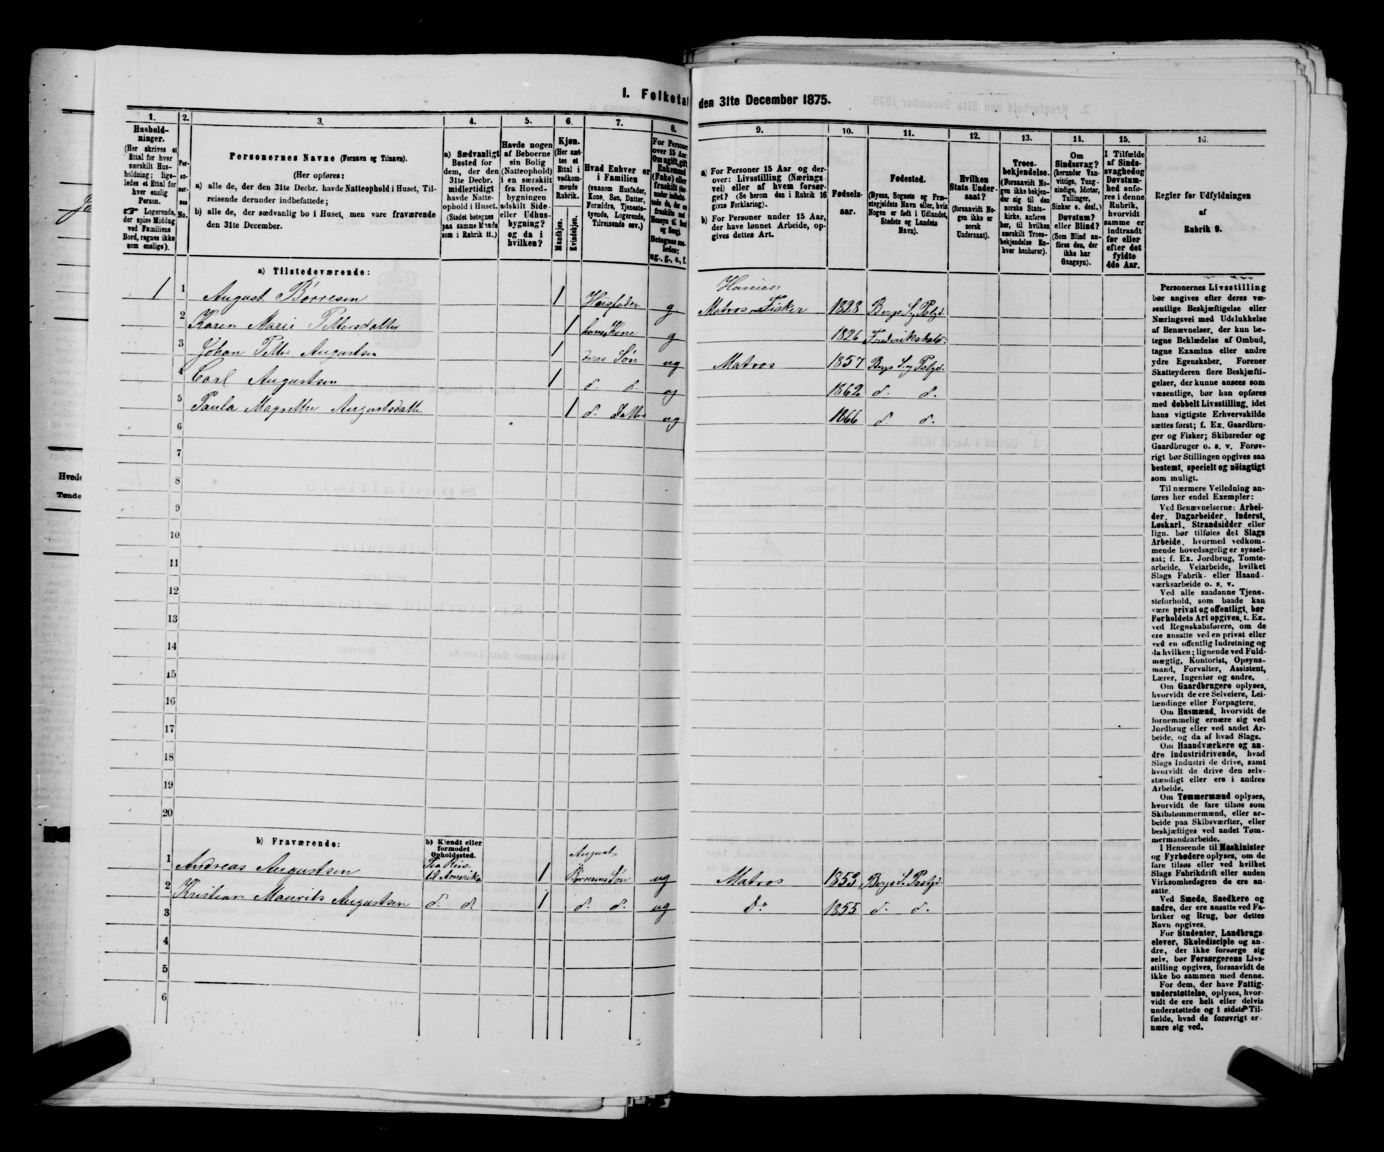 I. Folketal den 31te December 1875.
1.
Hushold-
ninger.
(Her skrives et
Ettal for hver
særskilt Hus-
holdning; lige-
ledes et Ettal for
hver enslig
Person.
☞ Logerende,
der spise Middag
ved Familiens
Bord, regnes ikke
som enslige).
2.
Per-
so-
ner-
nes
No.
3.
Personernes Navne (Fornavn og Tilnavn).
(Her opføres:
a) alle de, der den 31te Decbr. havde Natteophold i Huset, Til-
reisende derunder indbefattede;
b) alle de, der sædvanlig bo i Huset, men vare fraværende
den 31te December.
4.
a) Sædvanligt
Bosted for
dem, der den
31te Decbr.
midlertidigt
havde Natte-
ophold i Huset.
(Stedet betegnes
paa samme Maade
som i Rubrik 11.)
5.
Havde nogen
af Beboerne
sin Bolig
(Natteophold)
i en særskilt
fra Hoved-
bygningen
adskilt Side-
eller Udhus-
bygning?
og da i
hvilken?
6.
Kjøn.
(Her sæt-
tes et
Ettal i
vedkom-
mende
Rubrik.
Mandkjøn.
Kvindekjøn.
7.
Hvad Enhver er
i Familien
(saasom Husfader,
Kone, Søn, Datter,
Forældre, Tjeneste-
tyende, Logerende,
Tilreisende osv.)
8.
9.
a) For Personer 15 Aar og der-
over: Livsstilling (Nærings-
vei) eller af hvem forsør-
get? (Se herom den i Rubrik 16
givne Forklaring).
b) For Personer under 15 Aar,
der have lønnet Arbeide, op-
gives dettes Art.
10.
Fødsels-
aar.
11.
Fødested.
(Byens, Sognets og Præ-
stegjeldets Navn eller, hvis
Nogen er født i Udlandet,
Stedets og Landets
Navn).
12.
Hvilken
Stats Under-
saat?
(forsaavidt No-
gen ikke er
norsk
Undersaat).
13.
Troes-
bekjendelse.
(Forsaavidt No-
gen ikke bekjen-
der sig til den
norske Stats-
kirke, anføres
her, til hvilken
særskilt Troes-
bekjendelse En-
hver henhører).
14.
Om
Sindssvag?
(herunder Van-
vittige, Tung-
sindige, Idioter,
Tullinger,
Sinker o. desl.)
Døvstum?
eller Blind?
(Som Blind an-
føres den, der
ikke har
Gangsyn).
15.
I Tilfælde
af Sinds-
svaghed og
Døvstum-
hed anfø-
res i denne
Rubrik,
hvorvidt
samme er
indtraadt
før eller
efter det
fyldte
4de Aar.
16.
Regler for Udfyldningen
af
Rubrik 9.
a) Tilstedeværende:
1 1 August Børresen 1 Husfader g Haveier Matros Fisker 1828
2 Karen Marie Pettersdatter 1 hans Kone g 1826 Fredrikshald
3 Johan Petter Augustsen 1 deres Søn ug Matros 1857
4 Carl Augustsen 1 d. d. ug 1862 d. d.
5 Paula Magrethe Augustsdatter 1 d. Datter ug 1866 d. d.
6
7
8
9
10
11
12
13
14
15
16
17
18
19
20
b) Fraværende:
b) Kjendt eller
formodet
Opholdssted.
1 Andreas Augustsen Paa Reise til Amerika 1 August Børresens Søn ug Matros 1853
2 Kristian Maurits Augustsen d. d. 1 d. d. ug do 1855 d. d.
3
4
5
6
Personernes Livsstilling
bør angives efter deres væ-
sentlige Beskjæftigelse eller
Næringsvei med Udelukkelse
af Benævnelser, der kun be-
tegne Beklædelse af Ombud,
tagne Examina eller andre
ydre Egenskaber. Forener
Skatteyderen flere Beskjæfti-
gelser, der kunne ansees som
væsentlige, bør han opføres
med dobbelt Livsstilling, idet
hans vigtigste Erhvervskilde
sættes først; f. Ex. Gaardbru-
ger og Fisker; Skibsreder og
Gaardbruger o. s. v. Forøv-
rigt bør Stillingen opgives saa
bestemt, specielt og nøiagtigt
som muligt.
Til nærmere Veiledning an-
føres her endel Exempler:
Ved Benævnelserne: Arbei-
der, Dagarbeider, Inderst,
Løskarl, Strandsidder eller
lign. bør tilføies det Slags
Arbeide, hvormed vedkom-
mende hovedsagelig er syssel-
sat; f. Ex. Jordbrug, Tomte-
arbeide, Veiarbeide, hvilket
Slags Fabrik- eller Haand-
værksarbeide o. s. v.
Ved alle saadanne Tjene-
steforhold, som baade kan
være privat og offentligt, bør
Forholdets Art opgives, t. Ex.
ved Regnskabsførere, om de
ere ansatte ved en privat eller
ved en offentlig Indretning og
da hvilken; lignende ved Fuld-
mægtig, Kontorist, Opsyns-
mand, Forvalter, Assistent,
Lærer, Ingeniør og andre.
Om Gaardbrugere oplyses,
hvorvidt de ere Selveiere, Lei-
lændinge eller Forpagtere.
Om Husmænd, hvorvidt de
fornemmelig ernære sig ved
Jordbrug eller ved andet Ar-
beide, og da af hvad Slags.
Om Haandværkere og an-
dre Industridrivende, hvad
Slags Industri de drive, samt
hvorvidt de drive den selv-
stændigt eller ere i andres
Arbeide.
Om Tømmermænd oplyses,
hvorvidt de fare tilsøs som
Skibstømmermænd, eller ar-
beide paa Skibsværfter, eller
beskjæftiges ved andet Tøm-
mermandsarbeide.
I Henseende til Maskinister
og Fyrbødere oplyses, om de
fare tilsøs eller ved hvilket
Slags Fabrikdrift eller anden
Virksomhedsgren de ere an-
satte.
Ved Smede, Snedkere og
andre, der ere ansatte ved Fa-
briker og Brug, bør dettes
Navn opgives.
For Studenter, Landbrugs-
elever, Skoledisciple og an-
dre, der ikke forsørge sig
selv, bør Forsørgerens Livs-
stilling opgives, forsaavidt de
ikke bo sammen med denne.
For dem, der have Fattig-
understøttelse, oplyses, hvor-
vidt de ere helt eller delvis
understøttede og i sidste Til-
fælde, hvad de forøvrigt er-
nære sig ved.